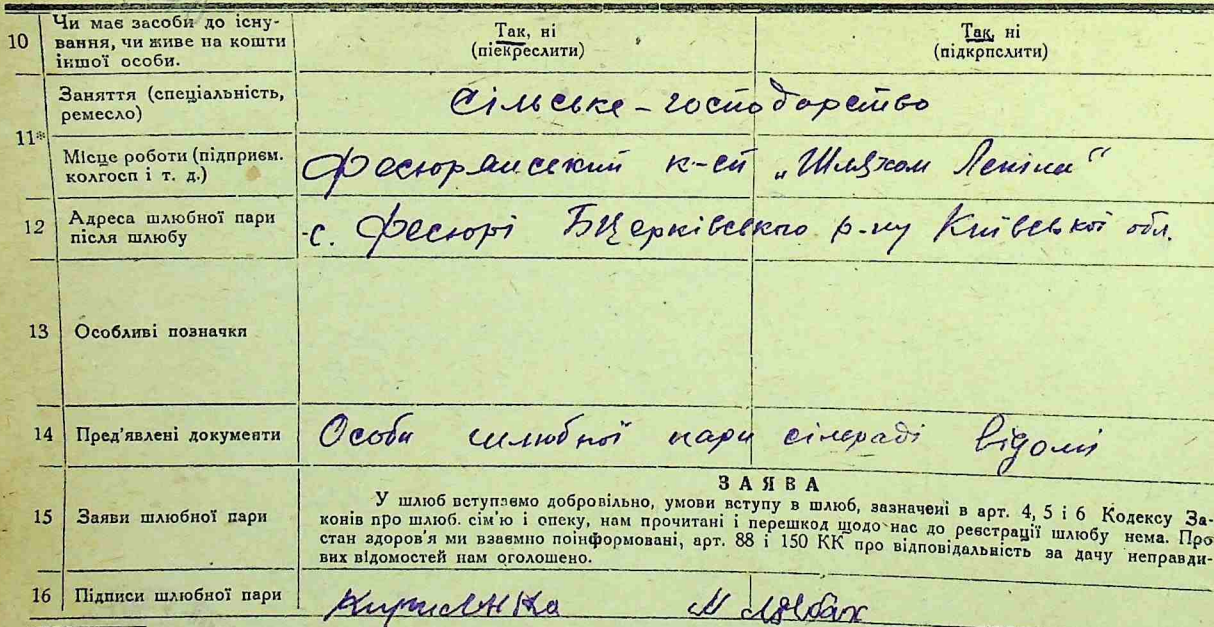 10 Чи має засоби до існу-
вання, чи живе на кошти
іншої особи.
Так, ні
(піекреслити)
Так, ні
(підкрпслити)
11*
Заняття (спеціальність,
ремесло)
Сільське-господарство
Місце роботи (підприєм.
колгосп і т. д.)
Фесюрянский к-сп „Шляхом Леніна"
12 Адреса шлюбної пари
після шлюбу
с. Фесюрі БЦерківського р-ну Київської обл.
13 Особливі позначки
14 Пред'явлені документи
Особи шлюбної пари сільраді відомі
15 Заяви шлюбної пари
ЗАЯВА
У шлюб вступаємо добровільно, умови вступу в шлюб, зазначені в арт. 4, 5 і 6 Кодексу За-
конів про шлюб. сім'ю і опеку, нам прочитані і перешкод щодо нас до реєстрації шлюбу нема. Про
стан здоров'я ми взаємно поінформовані, арт. 88 і 150 КК про відповідальність за дачу неправди-
вих відомостей нам оголошено.
16 Підписи шлюбної пари